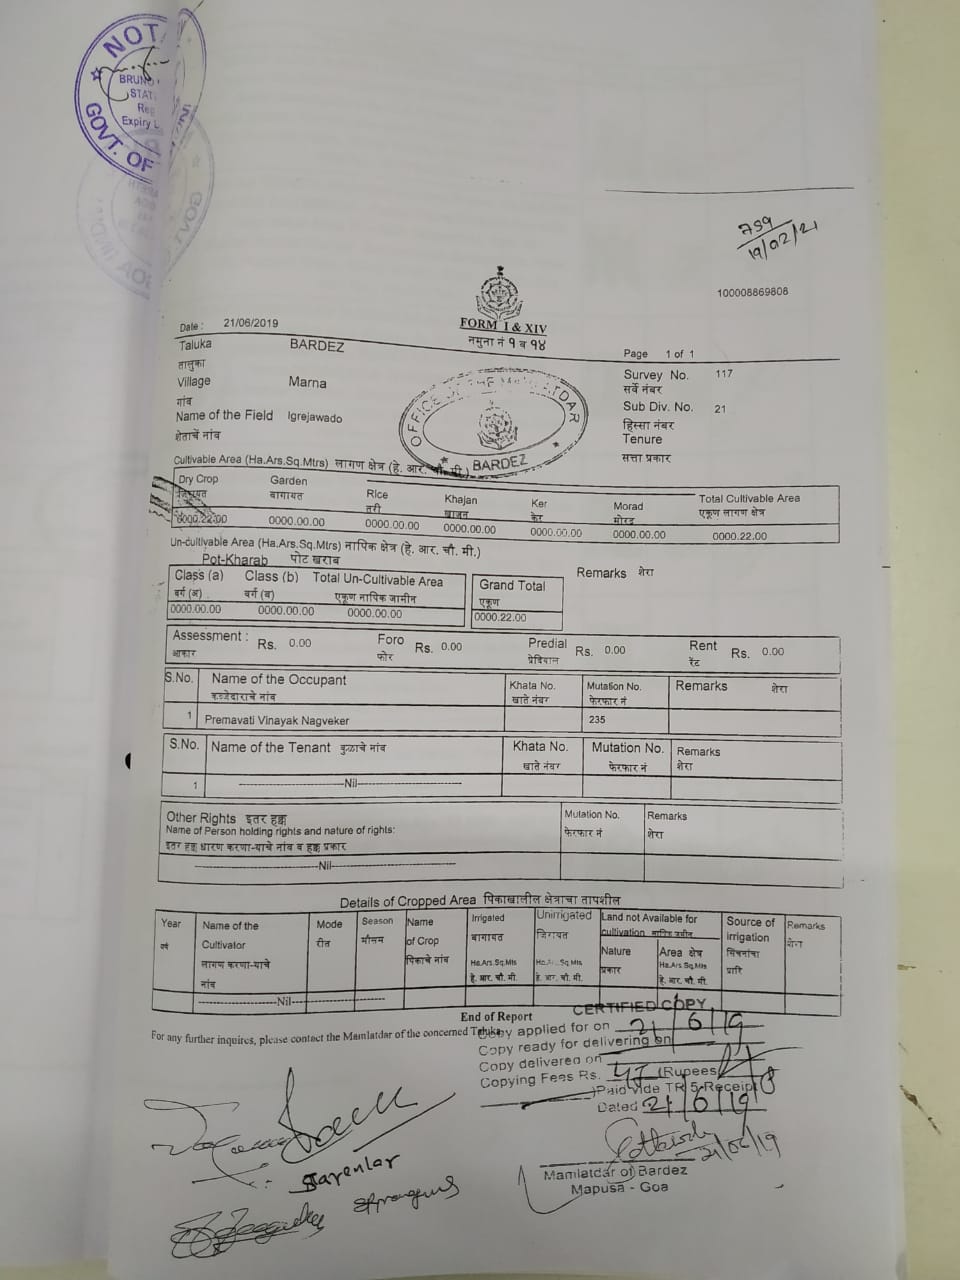 NOT
BRUNO
STAT
Reg
Expiry
GOVT. OF
759
19/02/21
100008869808
FORM I & XIV
नमुना नं १ व १४
Date : 21/06/2019
Page 1 of 1
Taluka BARDEZ
तालुका
Survey No. 117
सर्वे नंबर
Village Marna
गांव
Sub Div. No. 21
हिस्सा नंबर
Name of the Field Igrejawado
शेताचें नांव
Tenure
सत्ता प्रकार
OFFICE OF THE MAMLATDAR
BARDEZ
Cultivable Area (Ha.Ars.Sq.Mtrs) लागण क्षेत्र (हे. आर. चौ. मी.)
Dry Crop Garden Rice Khajan Ker Morad Total Cultivable Area
जिरायत बागायत तरी खाजन केर मोरड एकूण लागण क्षेत्र
0000.22.00 0000.00.00 0000.00.00 0000.00.00 0000.00.00 0000.00.00 0000.22.00
Un-cultivable Area (Ha.Ars.Sq.Mtrs) नापिक क्षेत्र (हे. आर. चौ. मी.)
Pot-Kharab पोट खराब
Remarks शेरा
Class (a) Class (b) Total Un-Cultivable Area Grand Total
वर्ग (अ) वर्ग (ब) एकूण नापिक जामीन एकूण
0000.00.00 0000.00.00 0000.00.00 0000.22.00
Assessment : Rs. 0.00 Foro Rs. 0.00 Predial Rs. 0.00 Rent Rs. 0.00
आकार फोर प्रेदियाल रेंट
S.No. Name of the Occupant Khata No. Mutation No. Remarks शेरा
कब्जेदाराचे नांव खाते नंबर फेरफार नं
1 Premavati Vinayak Nagveker 235
S.No. Name of the Tenant कुळाचे नांव Khata No. Mutation No. Remarks
खाते नंबर फेरफार नं शेरा
1 Nil
Other Rights इतर हक्क Mutation No. Remarks
Name of Person holding rights and nature of rights: फेरफार नं शेरा
इतर हक्क धारण करणा-याचे नांव व हक्क प्रकार
Nil
Details of Cropped Area पिकाखालील क्षेत्राचा तापशील
Year Name of the Mode Season Name Irrigated Unirrigated Land not Available for Source of Remarks
वर्ष Cultivator रीत मौसम of Crop बागायत जिरायत cultivation नापिक जमीन irrigation शेरा
लागण करणा-याचे पिकाचे नांव Ha.Ars.Sq.Mts Ha.Ars.Sq.Mts Nature Area क्षेत्र सिंचनांचा
नांव हे. आर. चौ. मी. हे. आर. चौ. मी. प्रकार Ha.Ars.Sq.Mts प्राि
हे. आर. चौ. मी.
Nil
End of Report
For any further inquires, please contact the Mamlatdar of the concerned Taluka
CERTIFIED COPY
Copy applied for on 21/6/19
Copy ready for delivering on
Copy delivered on
Copying Fees Rs. (Rupees
) Paid vide TR 5 Receipt
Dated 21/6/19
21/06/19
Mamlatdar of Bardez
Mapusa - Goa